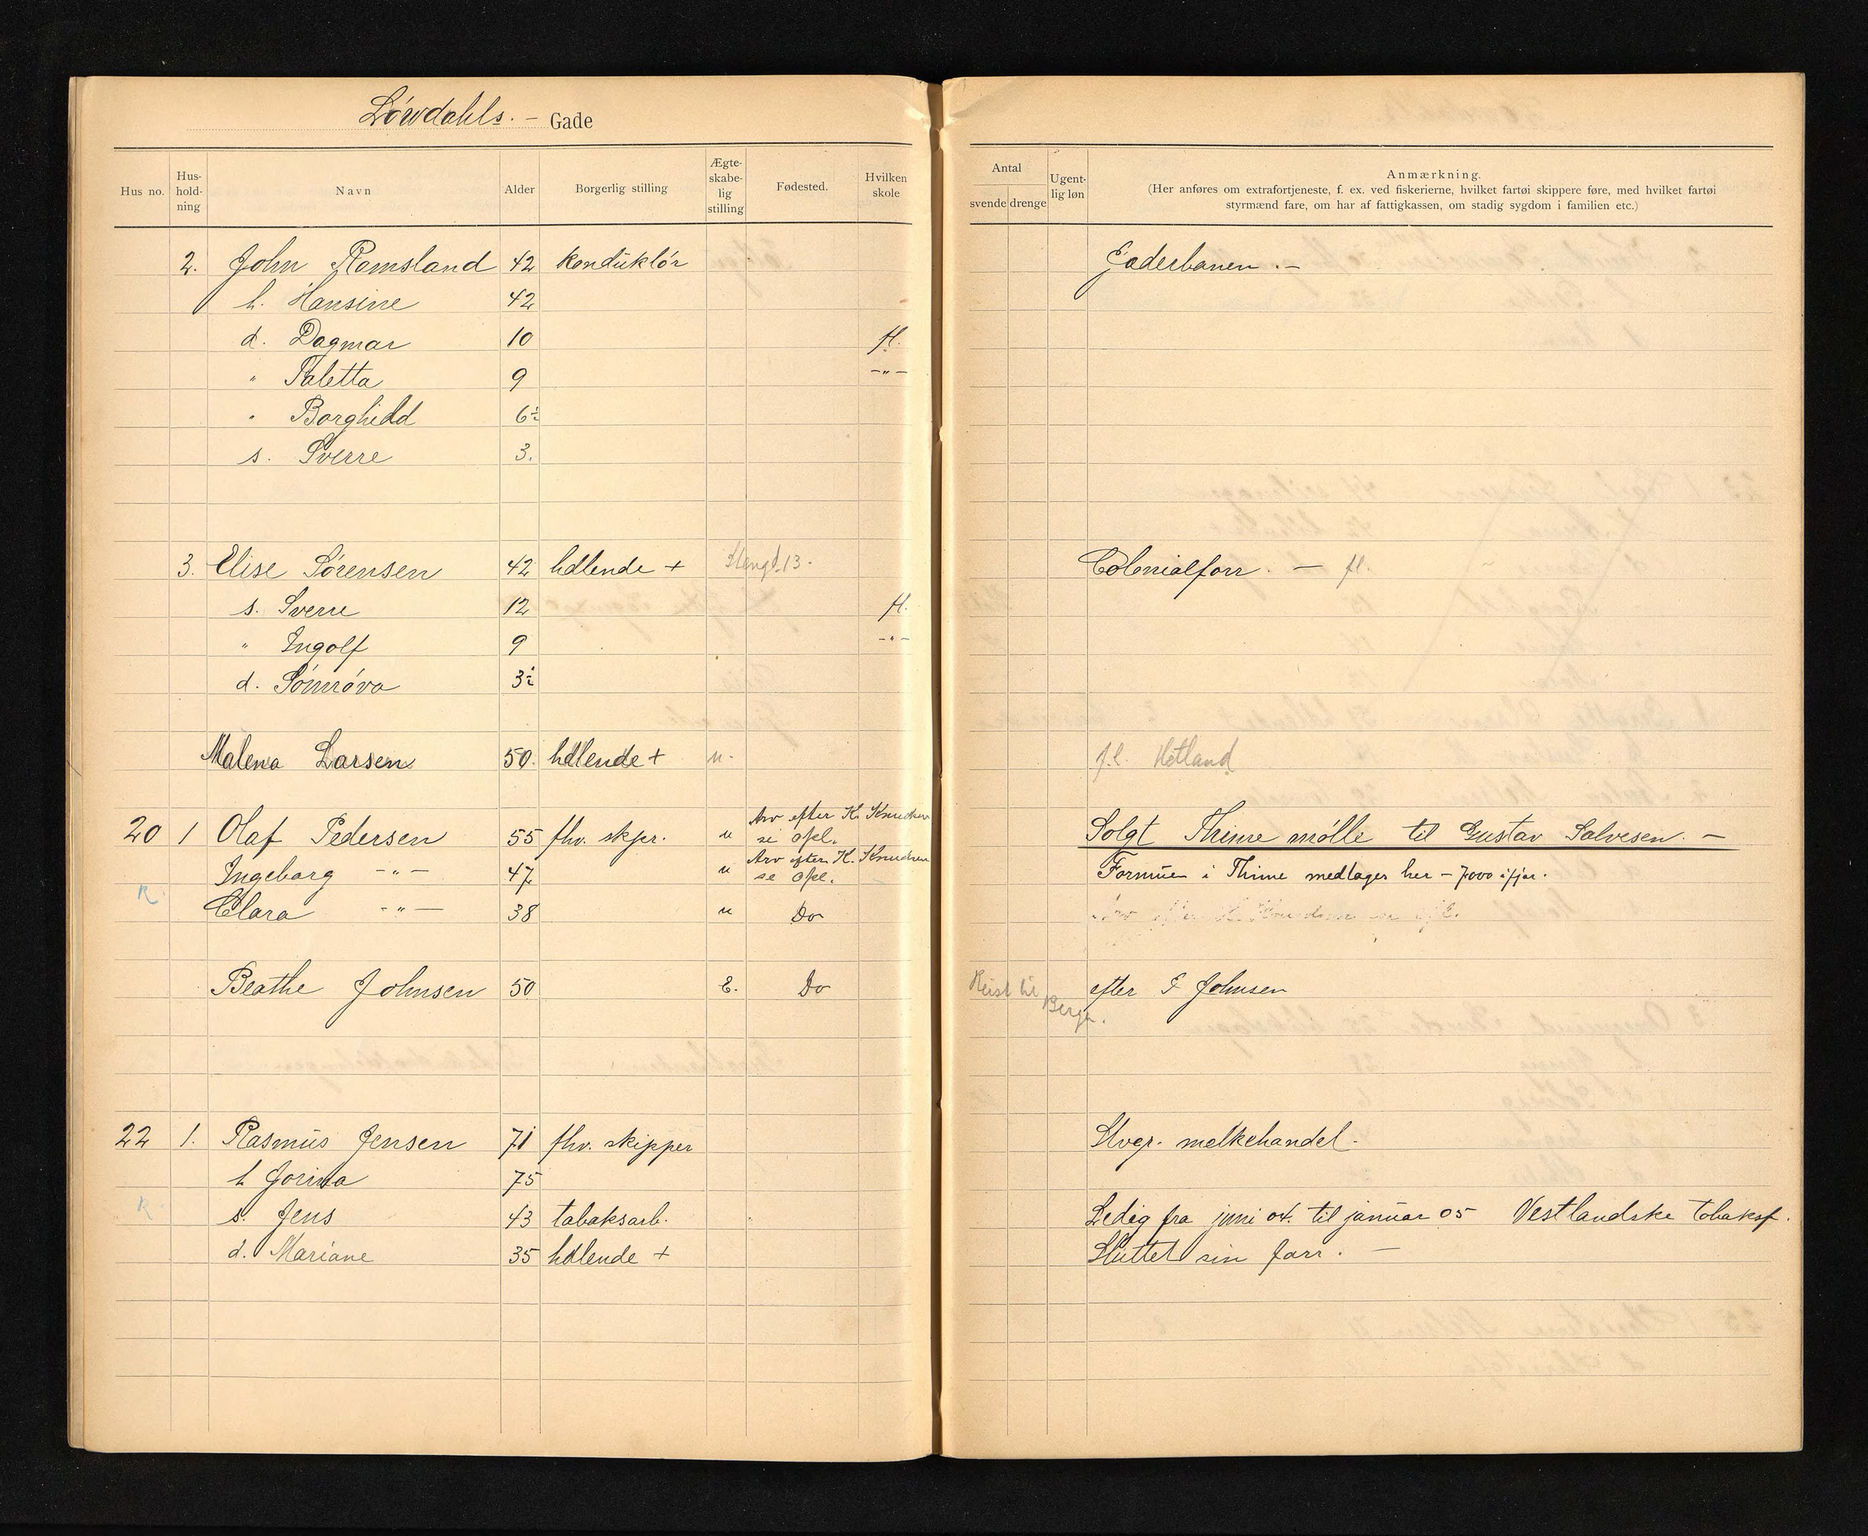 Löwdahls. - Gade
Hus no. Hus-hold-ning Navn Alder Borgerlig stilling Ægte-skabe-lig stilling Fødested. Hvilken skole Antal svende drenge Ugent-lig løn Anmærkning.
(Her anføres om extrafortjeneste, f. ex. ved fiskerierne, hvilket fartøi skippere føre, med hvilket fartøi
styrmænd fare, om har af fattigkassen, om stadig sygdom i familien etc.)
2. John Ramsland 42 konduktör Jæderbanen. -
h. Hansine 42
d. Dagmar 10 fl.
" Taletta 9 -"-
" Borghild 6½
s. Sverre 3.
3. Elise Sørensen 42 hdlende + 13. Colonialforr. - fl.
s. Sverre 12 fl.
" Ingolf 9 -"-
d. Sönnöva 3½
Malena Larsen 50. hdlende + u. f.l. Hetland
20 1 Olaf Pedersen 55 fhv. skpr. u Arv efter K. Knudsen se opl. Solgt Thime mølle til Gustav Salvesen. -
Ingeborg -"- 47 u Arv efter K. Knudsen se opl. Formue i Thime medtages her - 7000 ifjor.
R. Clara -"- 38 u Do
Beathe Johnsen 50 E. Do Reist til Bergen. efter F Johnsen
22 1. Rasmus Jensen 71 fhv. skipper Ubg. melkehandel.
h Jorina 75
R. s. Jens 43 tobaksarb. Ledig fra juni 04. til januar 05 Vestlandske Tobaksf.
d. Mariane 35 hdlende + Sluttet sin forr. -